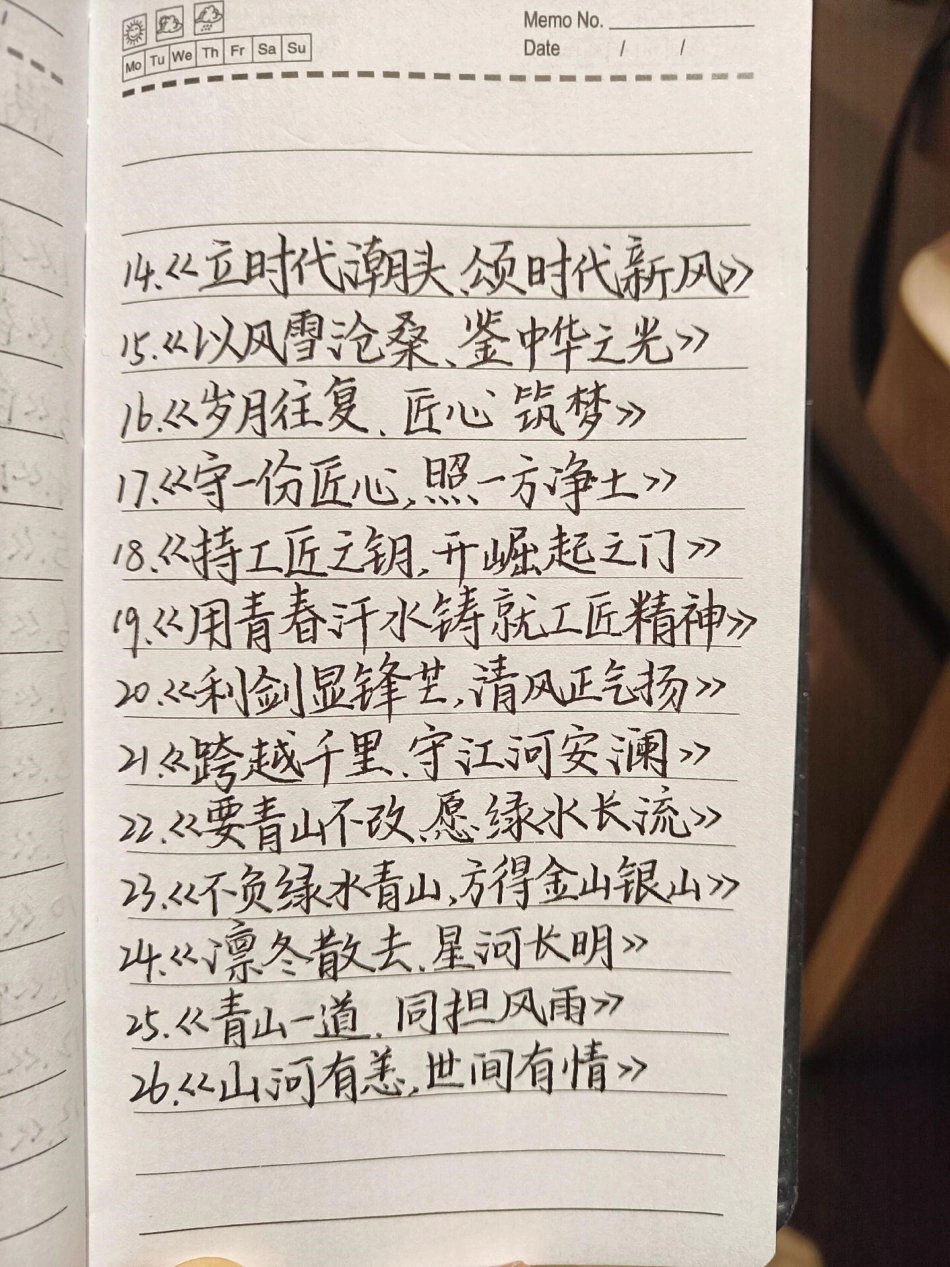 Memo No.
Mo Tu We Th Fr Sa Su
Date / /
14.《立时代潮头、颂时代新风》
15.《以风雪沧桑、鉴中华之光》
16.《岁月往复、匠心筑梦》
17.《守一份匠心,照一方净土》
18.《持工匠之钥,开崛起之门》
19.《用青春汗水铸就工匠精神》
20.《利剑显锋芒,清风正气扬》
21.《跨越千里、守江河安澜》
22.《要青山不改、愿绿水长流》
23.《不负绿水青山,方得金山银山》
24.《凛冬散去、星河长明》
25.《青山一道、同担风雨》
26.《山河有恙,世间有情》